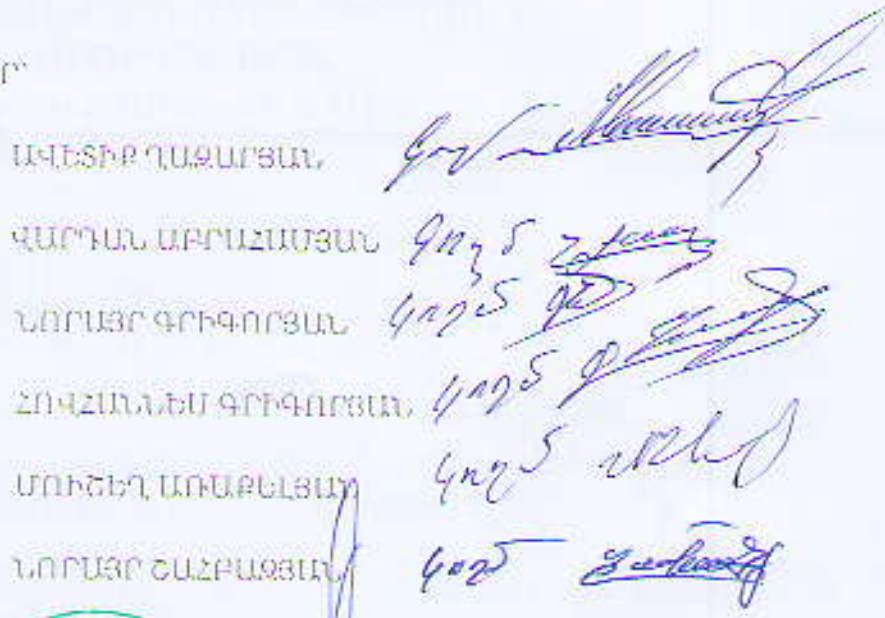 ԱՎԵՏԻՔ ՂԱԶԱՐՅԱՆ կողմ
ՎԱՐԴԱՆ ԱԲՐԱՀԱՄՅԱՆ կողմ
ՆՈՐԱՅՐ ԳՐԻԳՈՐՅԱՆ կողմ
ՀՈՎՀԱՆՆԵՍ ԳՐԻԳՈՐՅԱՆ կողմ
ՄՈՒՇԵՂ ԱՌԱՔԵԼՅԱՆ կողմ
ՆՈՐԱՅՐ ՇԱՀԲԱԶՅԱՆ կողմ